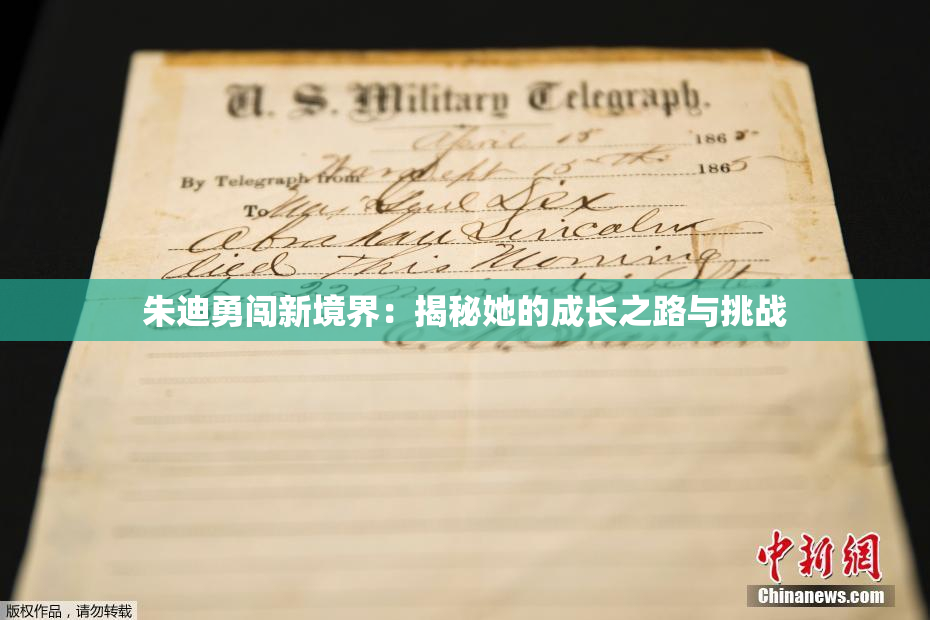 U. S. Military Telegraph.
April 15 1865
By Telegraph from War Dept 15th 1865
To Maj Genl Dix
Abraham Lincoln
died This Morning
at 22 minutes after
朱迪勇闯新境界：揭秘她的成长之路与挑战
E. M. Stanton
中新网
Chinanews.com
版权作品，请勿转载